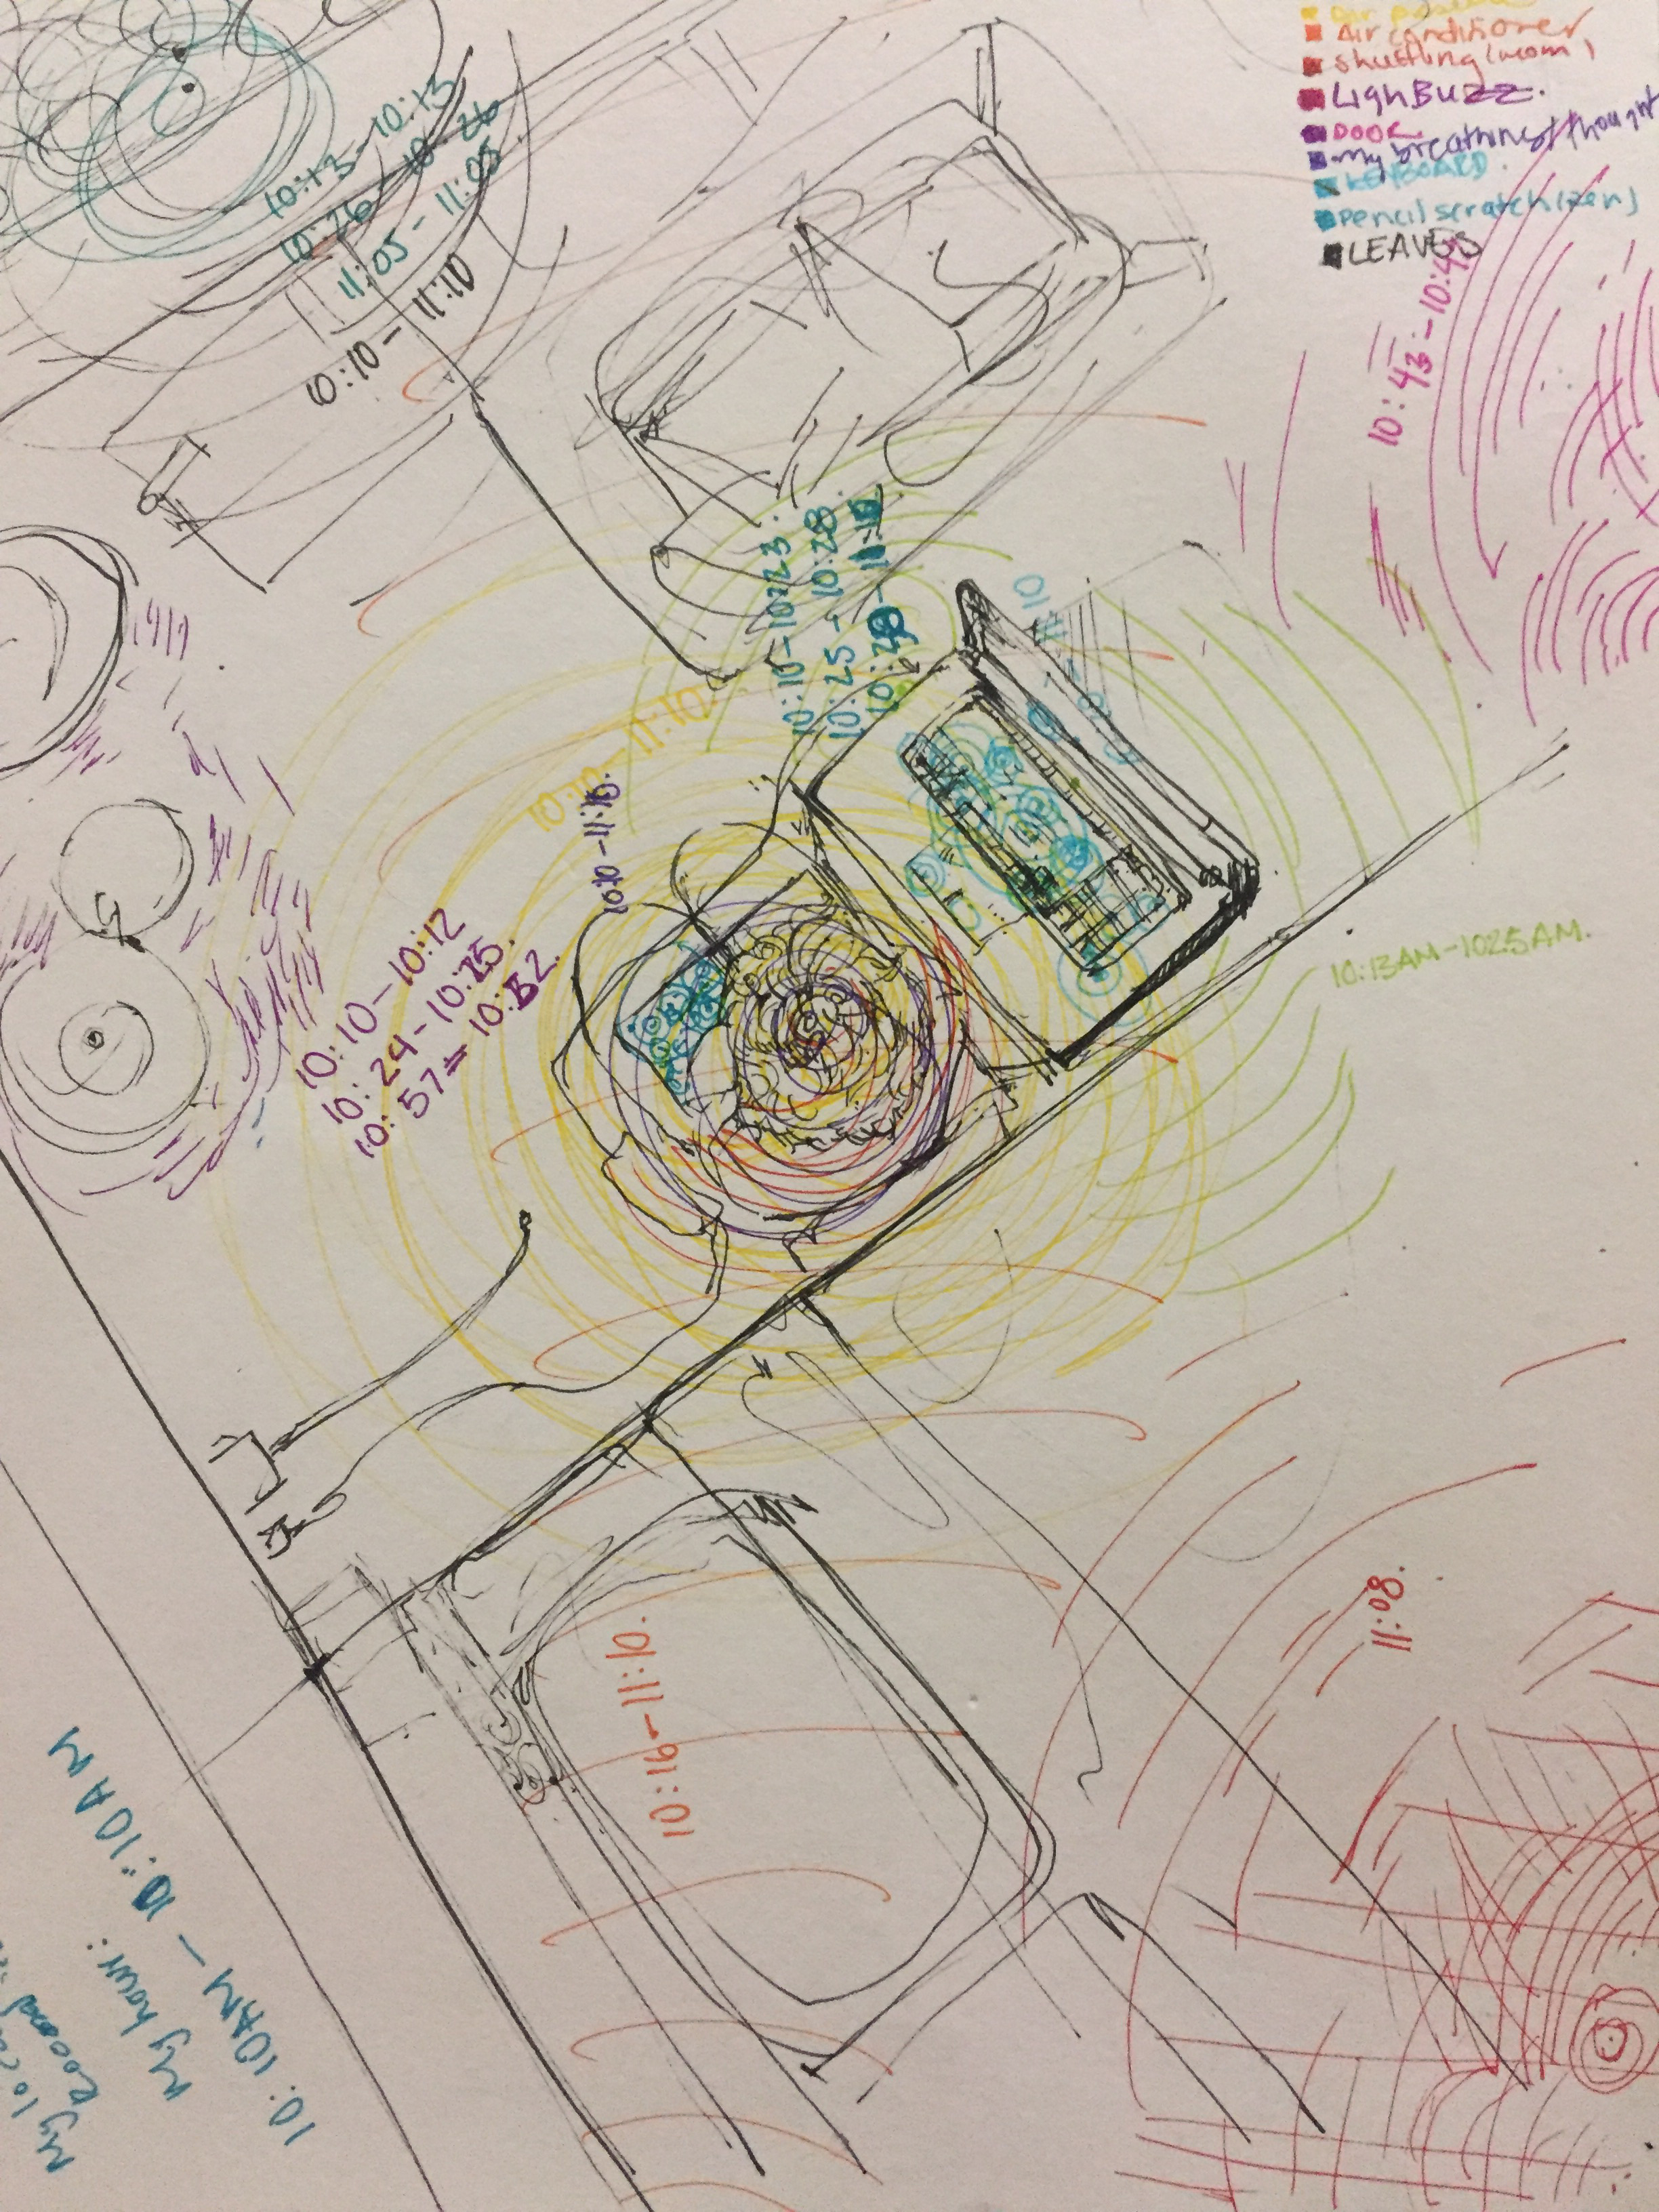 Air conditioner
shuffling (mom)
LighBuzz.
DOOR
my breathing/thought
KEYBOARD
pencil scratch (zen)
LEAVES
10:13-10:13
10:26 - 10:26
11:05 - 11:05
10:10 - 11:10
10:43-10:43
10:10-10:23.
10:25 - 10:28
10:28-11:10
10:10-11:10
10:10-11:10.
10:13AM-1025AM.
10:10-10:12
10:24-10:25.
10:57= 10:B2.
11:08.
10:16-11:10.
10:10AM - 10:10AM
My hour: